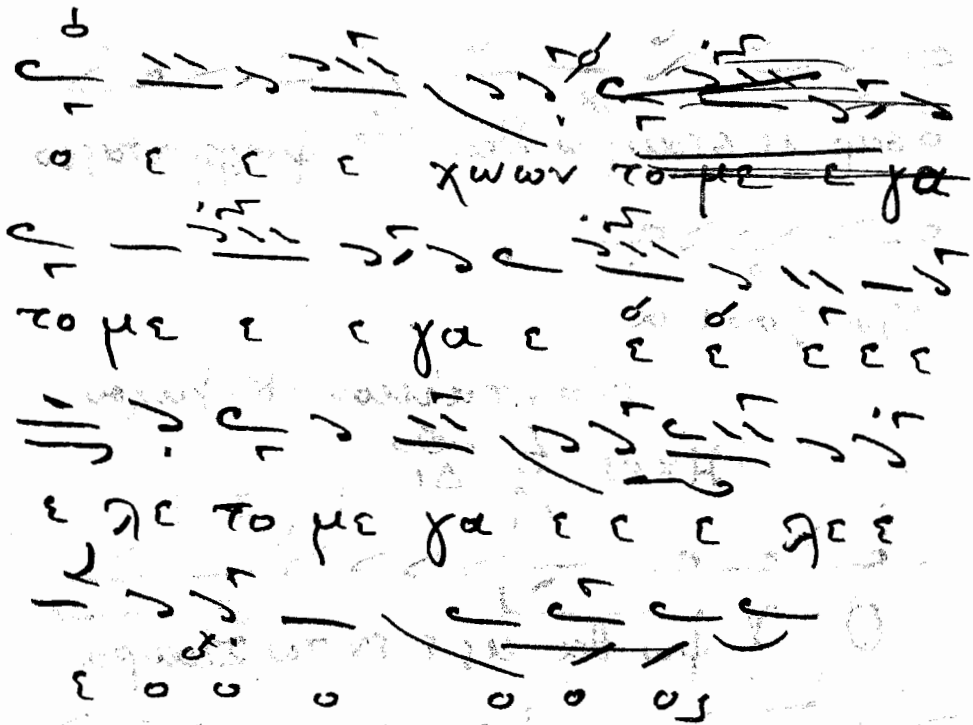 ο ε ε ε χωων το με ε γα
το με ε ε γα ε ε ε ε ε ε
ε λε το με γα ε ε ε λε ε
ε ο ο ο ο ο ος